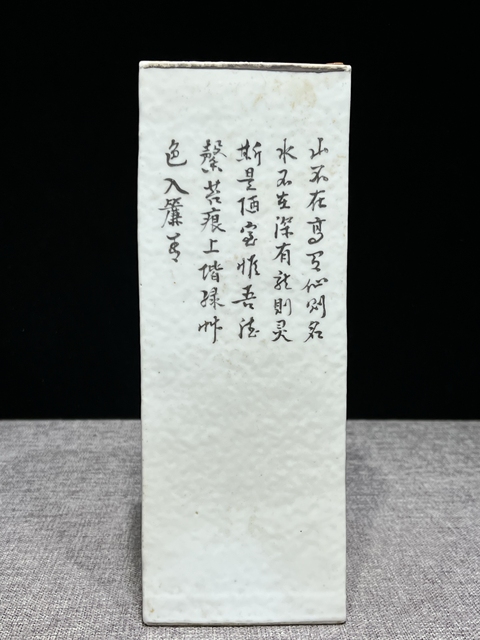 山不在高有仙则名
水不在深有龙則灵
斯是陋室惟吾德
馨苔痕上堦绿艸
色入簾青